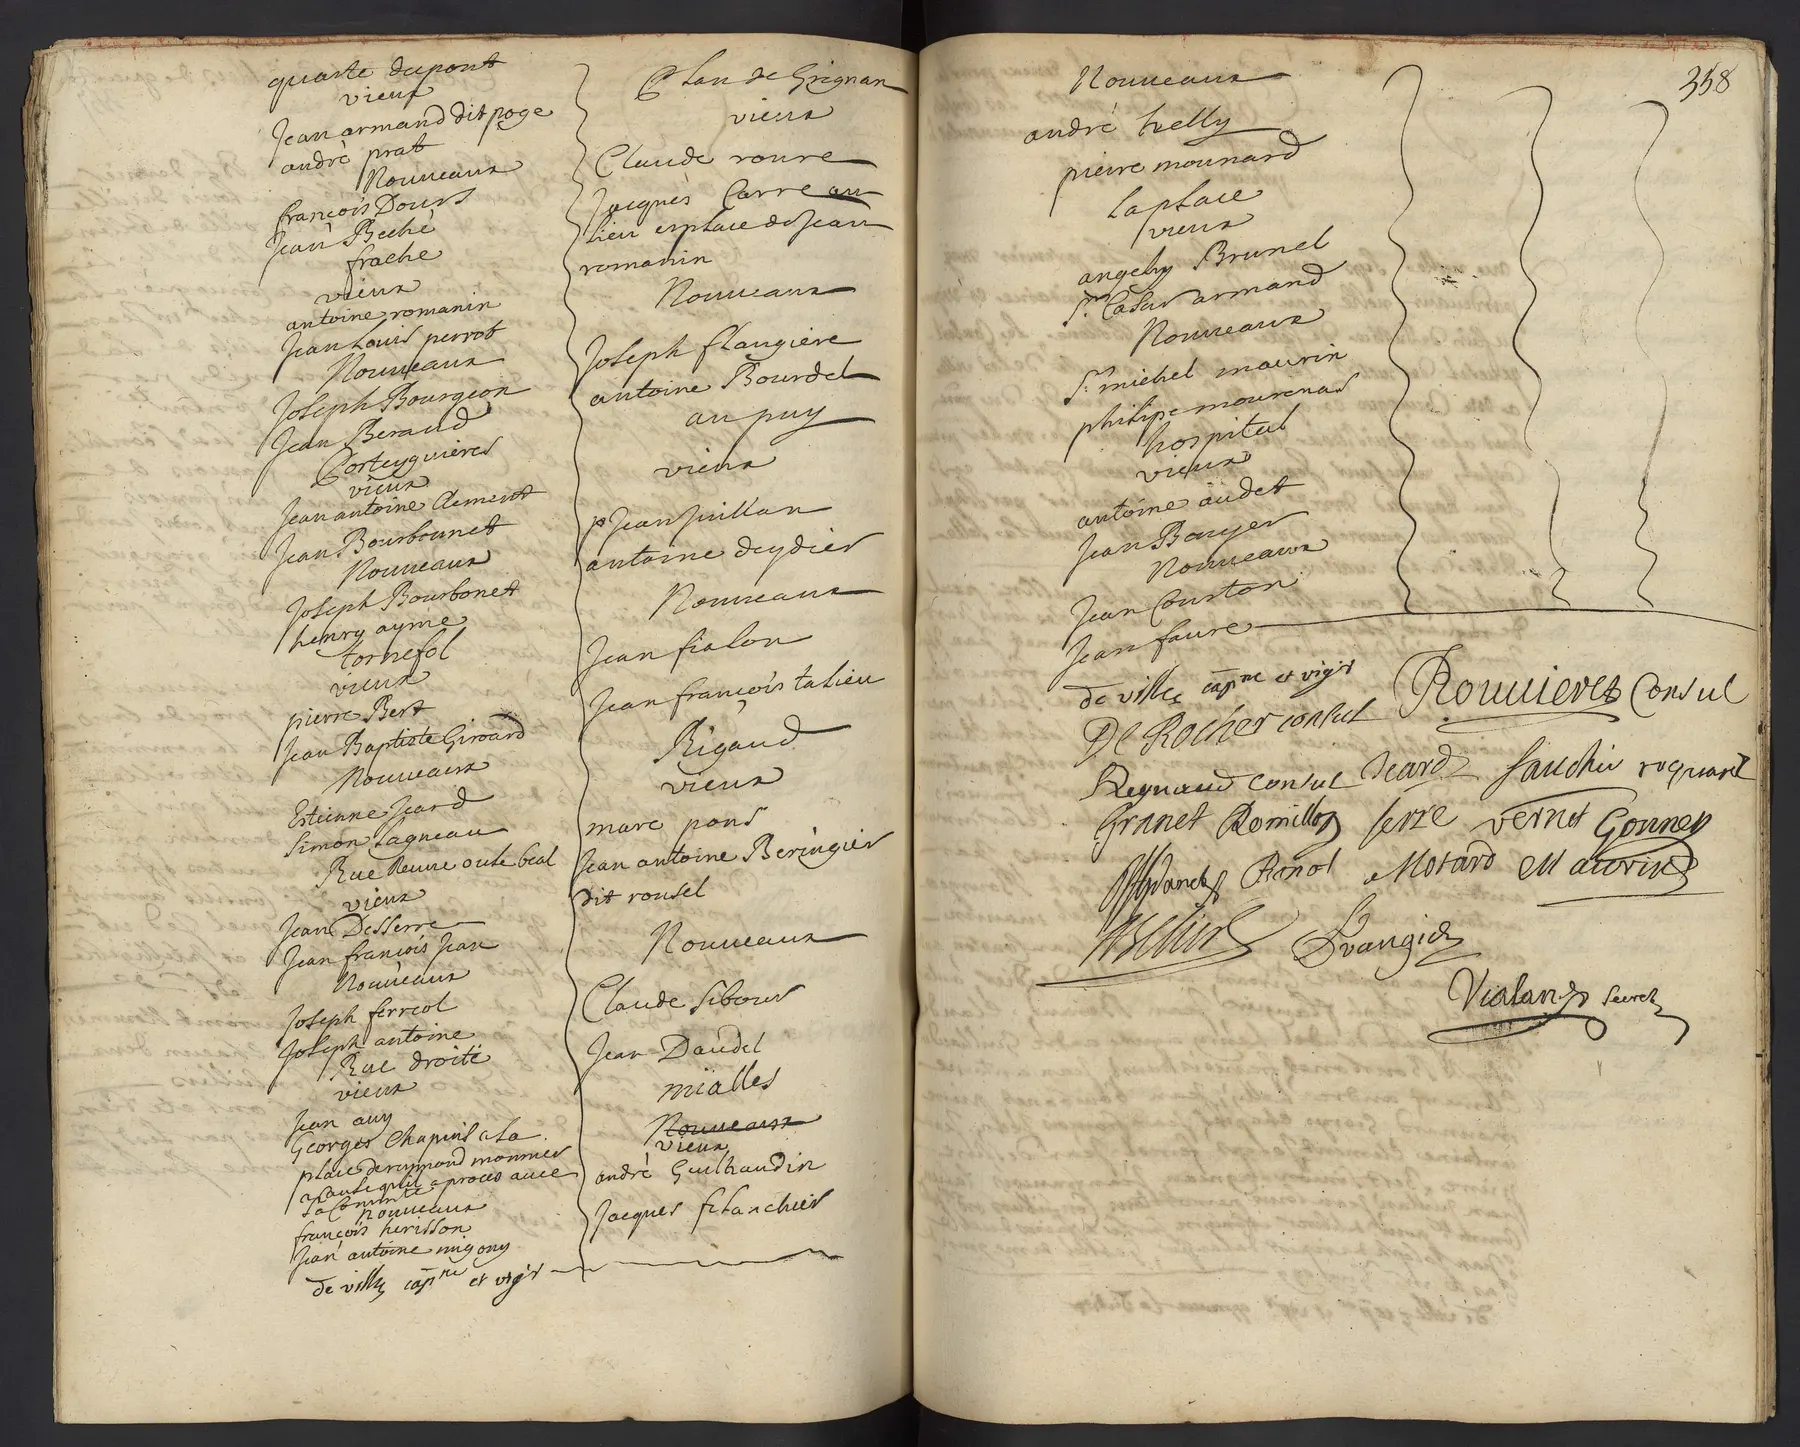 quarte dupont
vieux
Jean armand dit poge
andré prat
Nouveaux
françois Dours
Jean Beché
frache
vieux
antoine romanin
Jean Louis perrot
Nouveaux
Joseph Bourgeon
Jean Beraud
Corteyguieres
vieux
Jean antoine Clement
Jean Bourbounet
Nouveaux
Joseph Bourbonet
henry ayme
tornefol
vieux
pierre Bert
Jean Baptiste Giroard
Nouveaux
Estienne Jcard
Simon Lagneau
Rue Neuve oule beal
vieux
Jean Desserre
Jean françois Jean
Nouveaux
Joseph ferreol
Joseph antoine
Rue droite
vieux
Jean auy
Georges Chapuis a la
place de reymond monnier
a cause quil a proces avec
la Comunté
nouveaux
françois herisson
Jean antoine migony
de ville capne et vigr
Plan de Grignan
vieux
Claude roure
Jacques Carre au
lieu en place de Jean
romanin
Nouveaux
Joseph flaugiere
antoine Bourdel
au puy
vieux
Jean Juillan
antoine deydier
Nouveaux
Jean fialon
Jean françois talieu
Rigaud
vieux
marc pons
Jean antoine Beringier
dit rousel
Nouveaux
Claude sibour
Jean Daudel
mialles
Nouveaux
vieux
andré Guilhaudin
Jacques filanchier
358
Nouveaux
andré helly
pierre mounard
la place
vieux
angely Brunel
Sr Cesar armand
Nouveaux
Sr michel maurin
philipe mourenas
hospital
vieux
antoine audet
Jean Bouyer
Nouveaux
Jean Courton
Jean faure
de ville capne et vigr
De Rocher consul Rouvieres Consul
Regnaud consul Jcard Sauchir
Granet Romillon serre vernet Gonnet
Pinot Morard Maurin
Vialanes secret